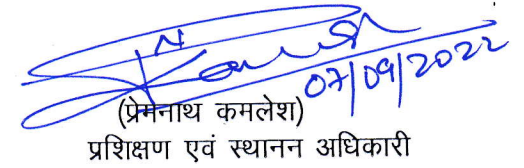 07/09/2022
(प्रेमनाथ कमलेश)
प्रशिक्षण एवं स्थानन अधिकारी